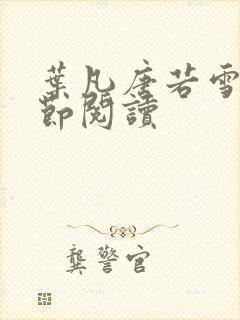 葉凡唐若雪
節閱讀
龔警官